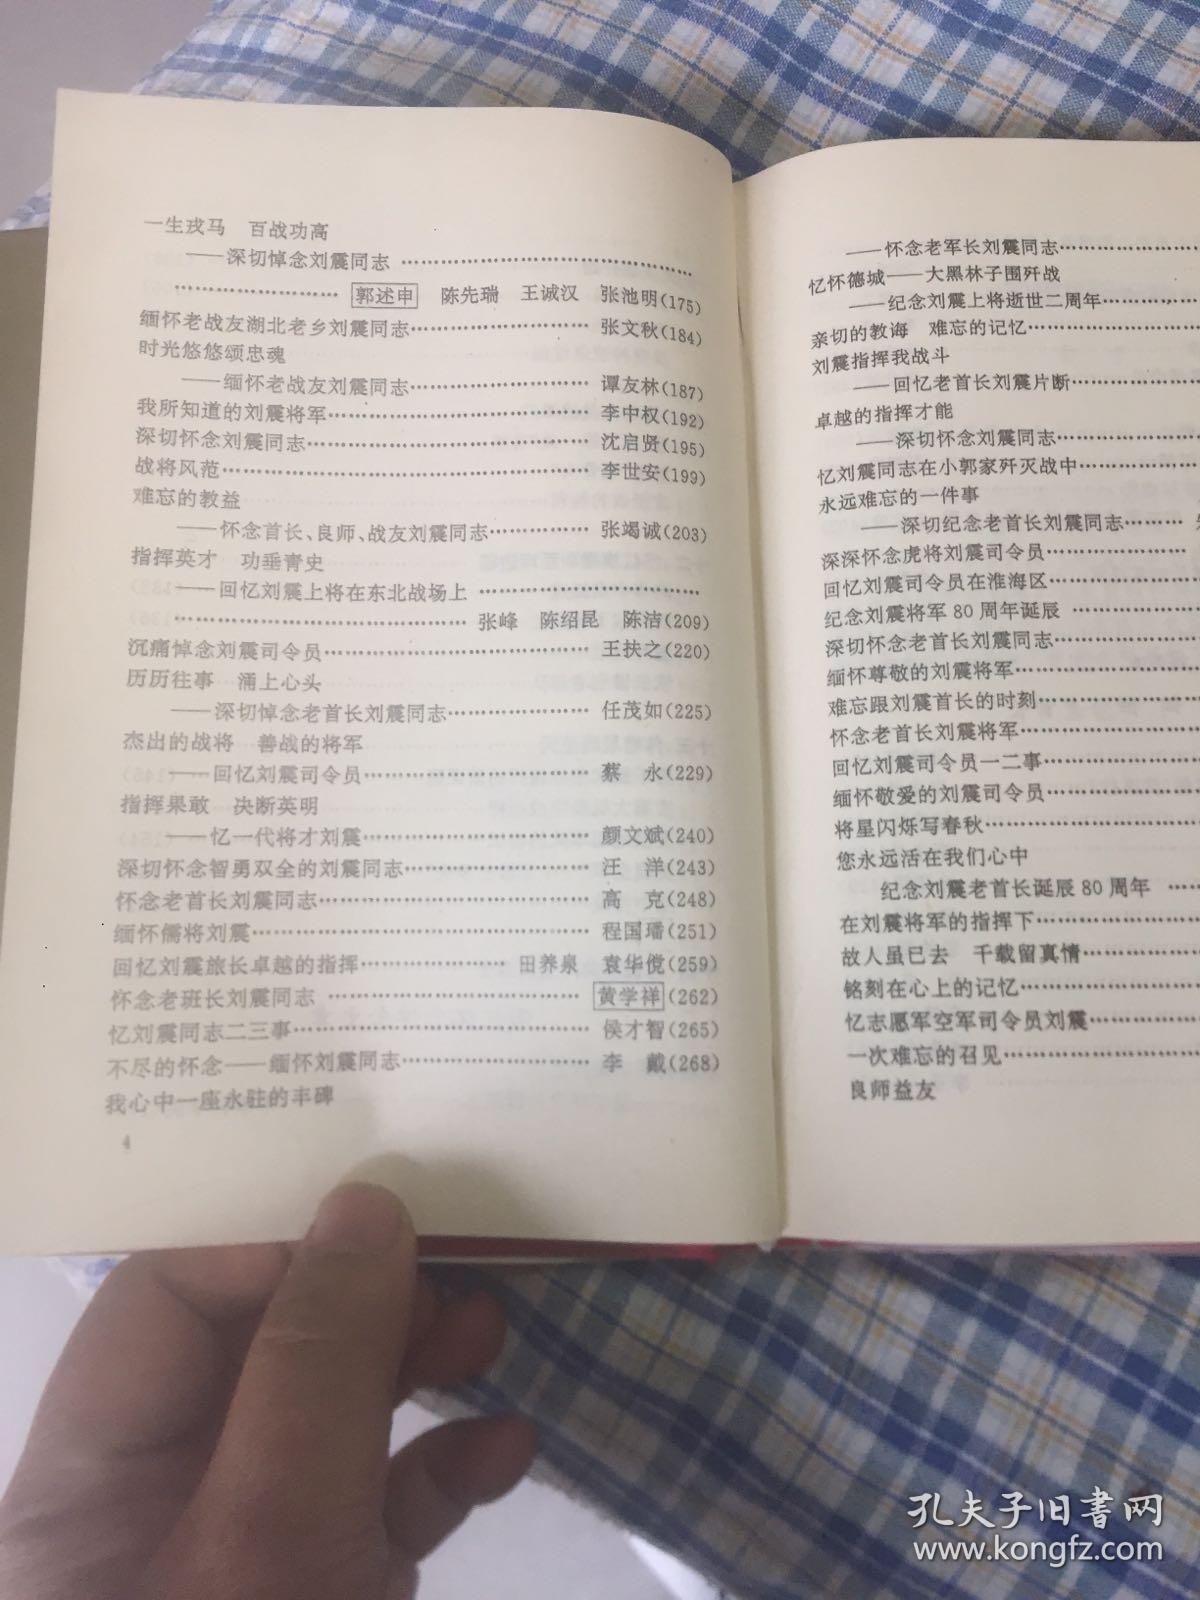 一生戎马　百战功高
——深切悼念刘震同志 ……………………………………
…………………… 郭述申　陈先瑞　王诚汉　张池明(175)
缅怀老战友湖北老乡刘震同志…………………… 张文秋(184)
时光悠悠颂忠魂
——缅怀老战友刘震同志…………………… 谭友林(187)
我所知道的刘震将军……………………………… 李中权(192)
深切怀念刘震同志………………………………… 沈启贤(195)
战将风范…………………………………………… 李世安(199)
难忘的教益
——怀念首长、良师、战友刘震同志………… 张竭诚(203)
指挥英才　功垂青史
——回忆刘震上将在东北战场上 ……………………………
…………………………………… 张峰　陈绍昆　陈洁(209)
沉痛悼念刘震司令员……………………………… 王扶之(220)
历历往事　涌上心头
——深切悼念老首长刘震同志………………… 任茂如(225)
杰出的战将　善战的将军
——回忆刘震司令员…………………………… 蔡　永(229)
指挥果敢　决断英明
——忆一代将才刘震…………………………… 颜文斌(240)
深切怀念智勇双全的刘震同志…………………… 汪　洋(243)
怀念老首长刘震同志……………………………… 高　克(248)
缅怀儒将刘震……………………………………… 程国璠(251)
回忆刘震旅长卓越的指挥……………… 田养泉　袁华傥(259)
怀念老班长刘震同志 …………………………… 黄学祥(262)
忆刘震同志二三事………………………………… 侯才智(265)
不尽的怀念——缅怀刘震同志…………………… 李　戴(268)
我心中一座永驻的丰碑
4
——怀念老军长刘震同志………………
忆怀德城——大黑林子围歼战
——纪念刘震上将逝世二周年…………
亲切的教诲　难忘的记忆…………………
刘震指挥我战斗
——回忆老首长刘震片断………………
卓越的指挥才能
——深切怀念刘震同志…………………
忆刘震同志在小郭家歼灭战中……………
永远难忘的一件事
——深切纪念老首长刘震同志………
深深怀念虎将刘震司令员………………
回忆刘震司令员在淮海区…………………
纪念刘震将军 80 周年诞辰 ………………
深切怀念老首长刘震同志…………………
缅怀尊敬的刘震将军………………………
难忘跟刘震首长的时刻……………………
怀念老首长刘震将军………………………
回忆刘震司令员一二事……………………
缅怀敬爱的刘震司令员……………………
将星闪烁写春秋……………………………
您永远活在我们心中
纪念刘震老首长诞辰 80 周年 ……
在刘震将军的指挥下………………………
故人虽已去　千载留真情…………………
铭刻在心上的记忆…………………………
忆志愿军空军司令员刘震…………………
一次难忘的召见……………………………
良师益友
孔夫子旧书网
www.kongfz.com